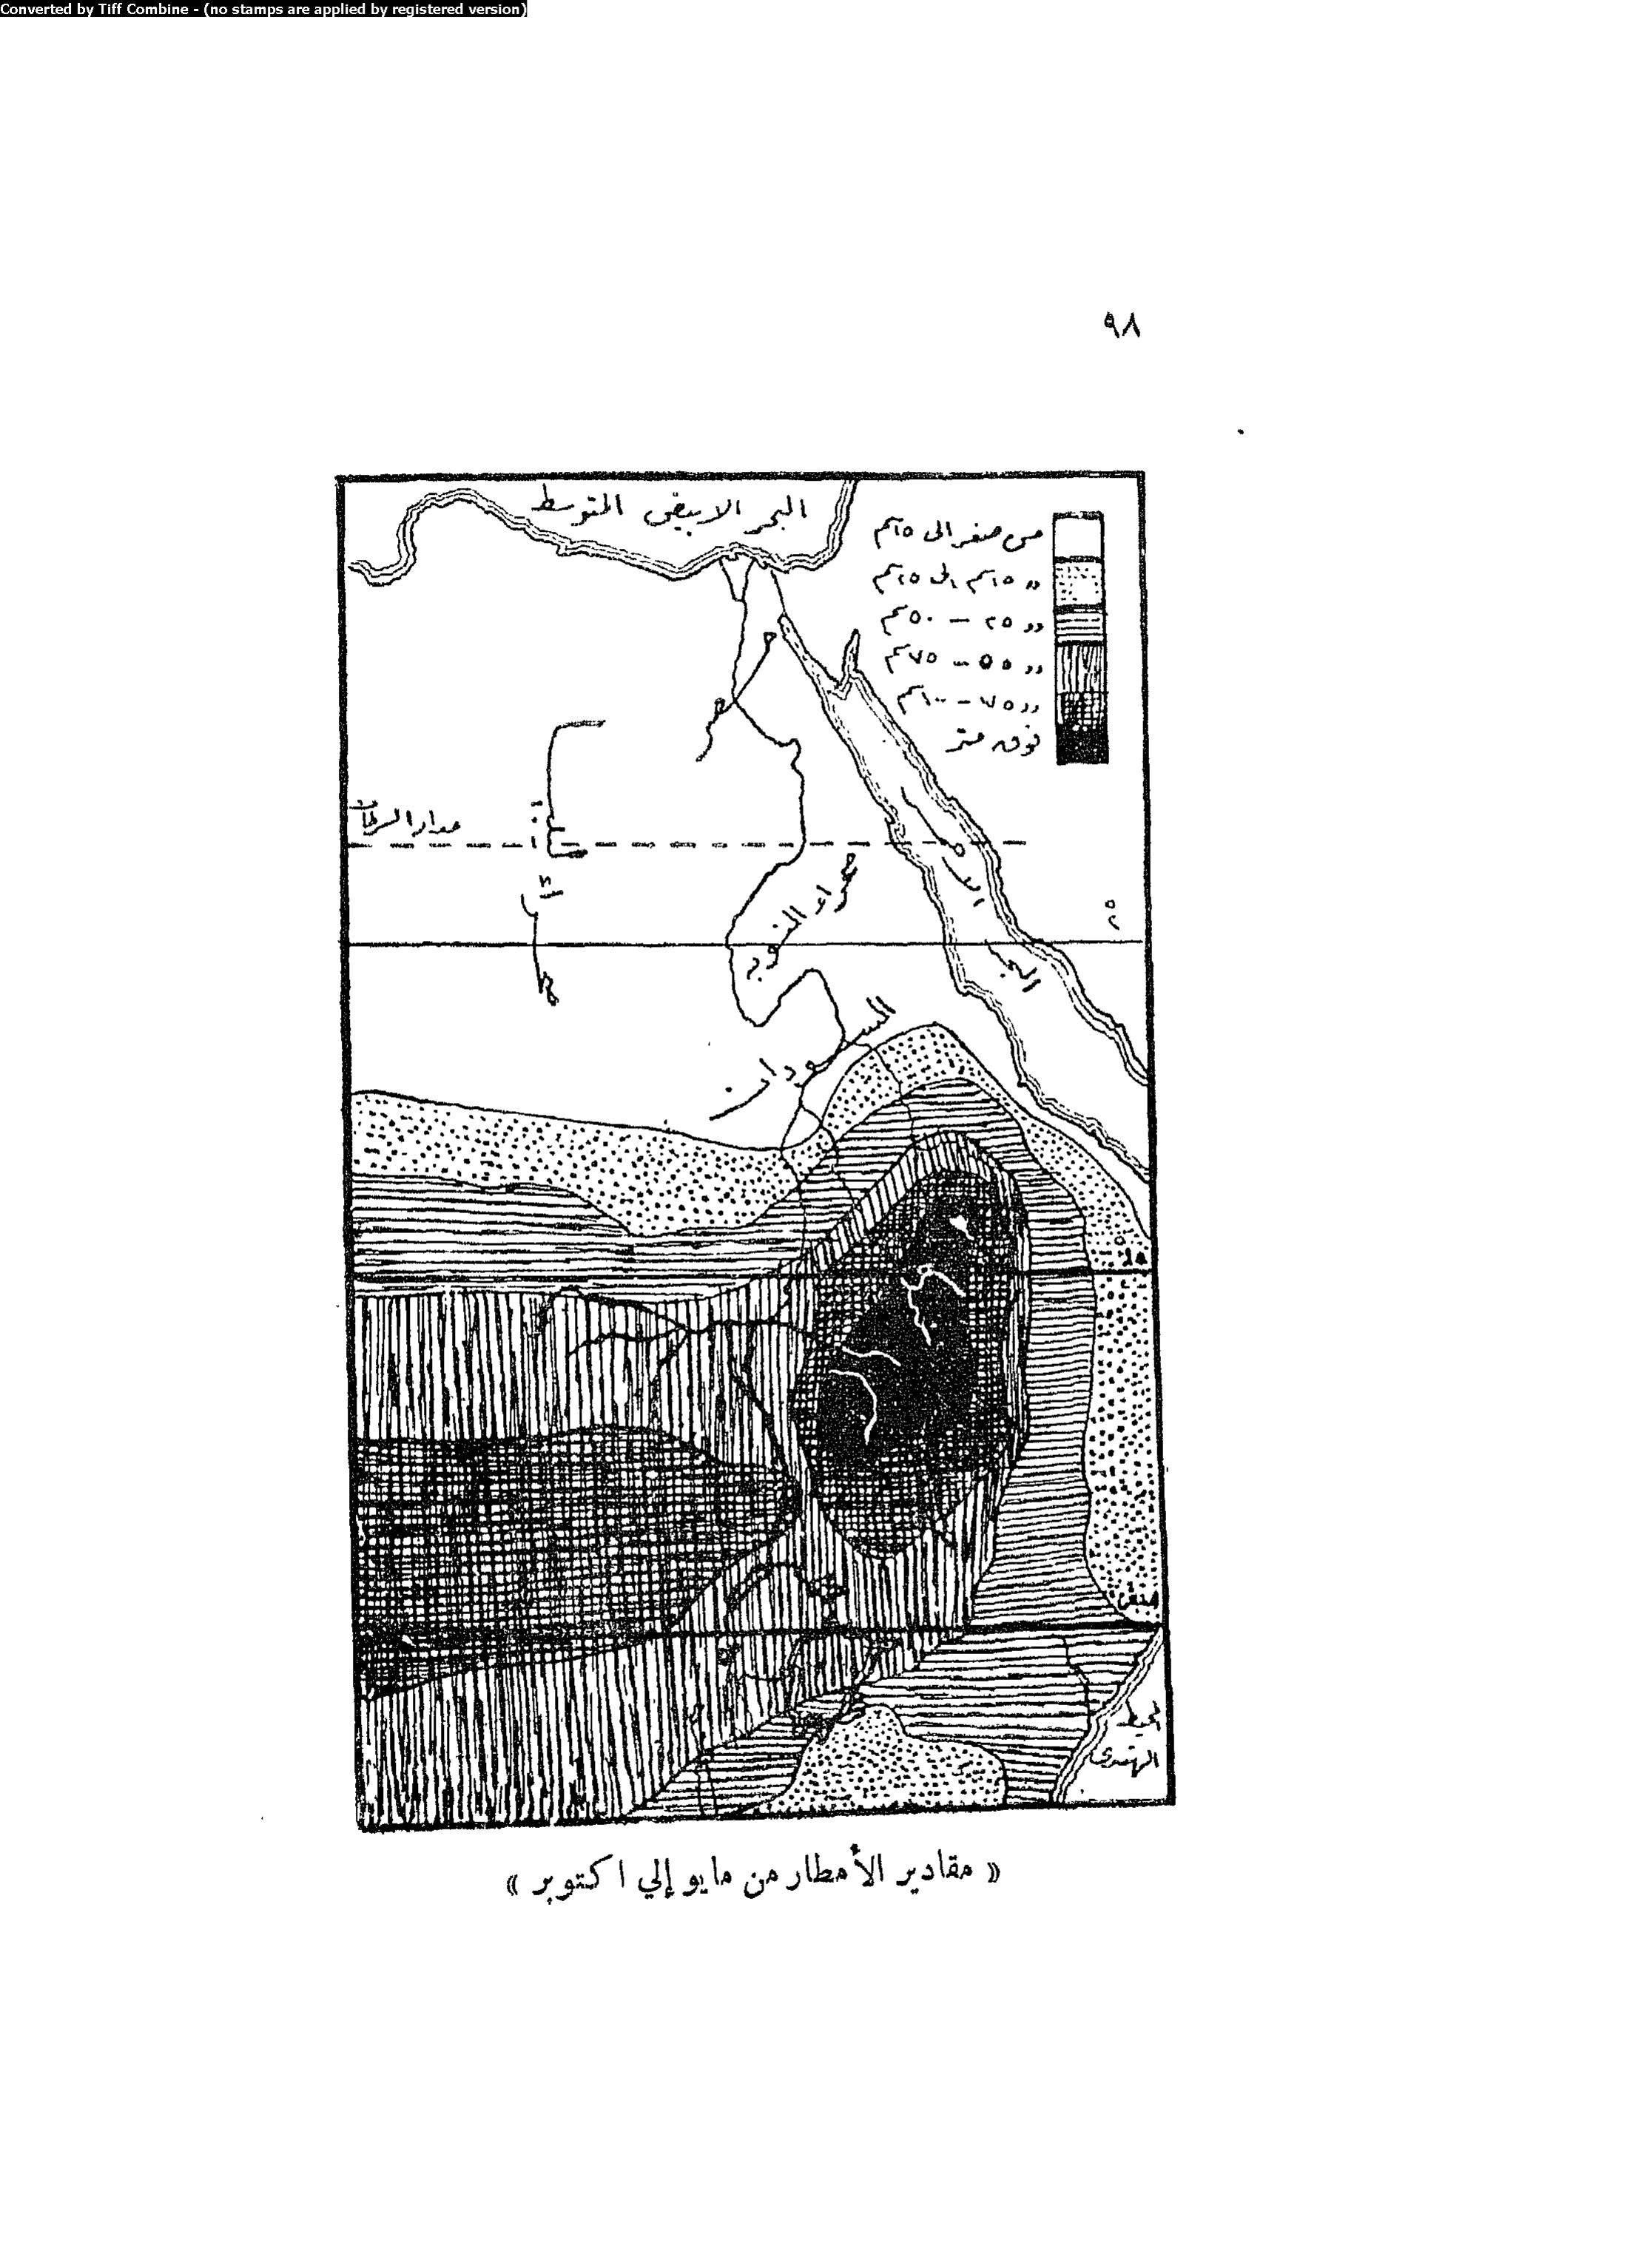 Converted by Tiff Combine - (no stamps are applied by registered version)
٩٨
البحر الابيض المتوسط
من صفر الى ١٥سم
» ١٥سم الى ٢٥سم
» ٢٥ - ٥٠سم
» ٥٥ - ٧٥سم
» ٧٥ - ١٠٠سم
فوق متر
مصر
مدار السرطان
صحراء
البحر
السودان
١٥
المحيط
الهندى
« مقادير الأمطار من مايو إلي اكتوبر »